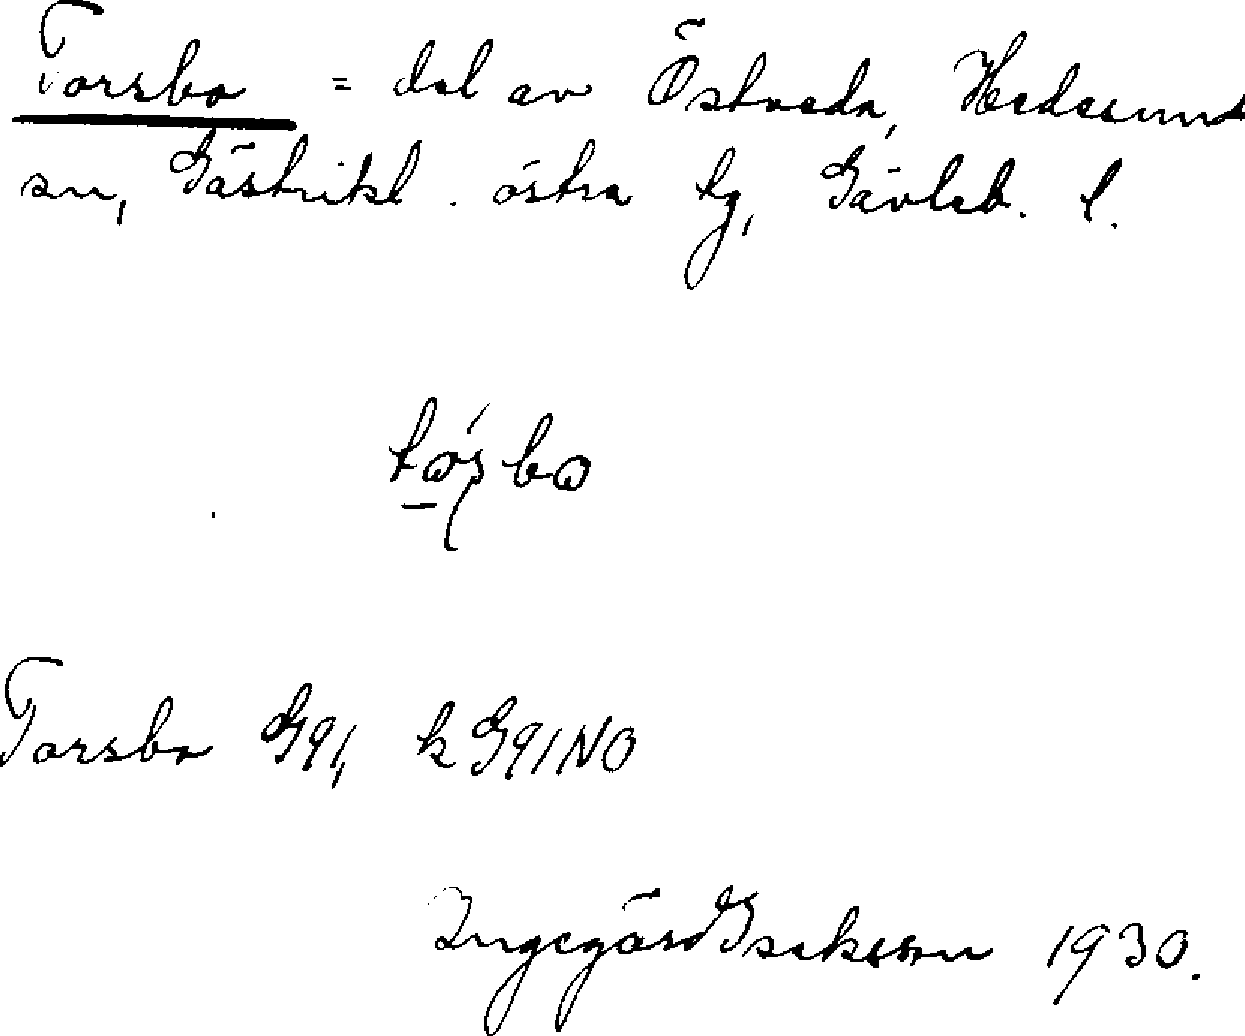 Torsbo = del av Östveda, Hedesunda
sn, Gästrikl. östra tg, Gävleb. l.
Torsbo G91, k G91NO
Ingegärd Isaksson 1930.